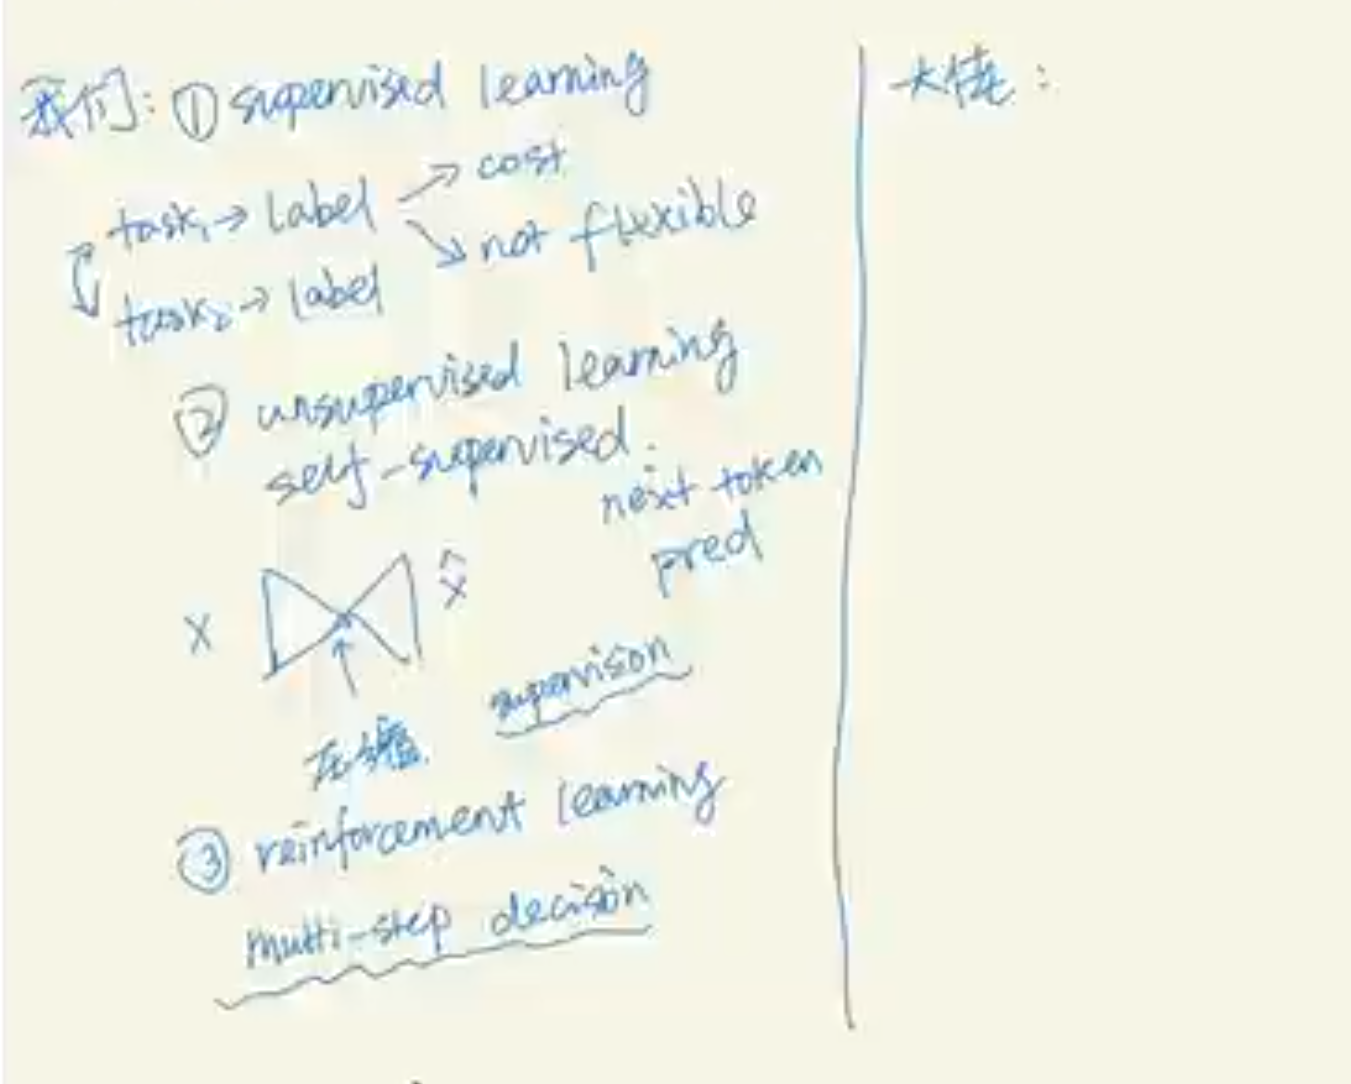 我们: ① supervised learning
task₁ → label → cost
→ not flexible
task₂ → label
② unsupervised learning
self-supervised.
next token
pred
x
x̂
supervision
压缩
③ reinforcement learning
multi-step decision
大佬: